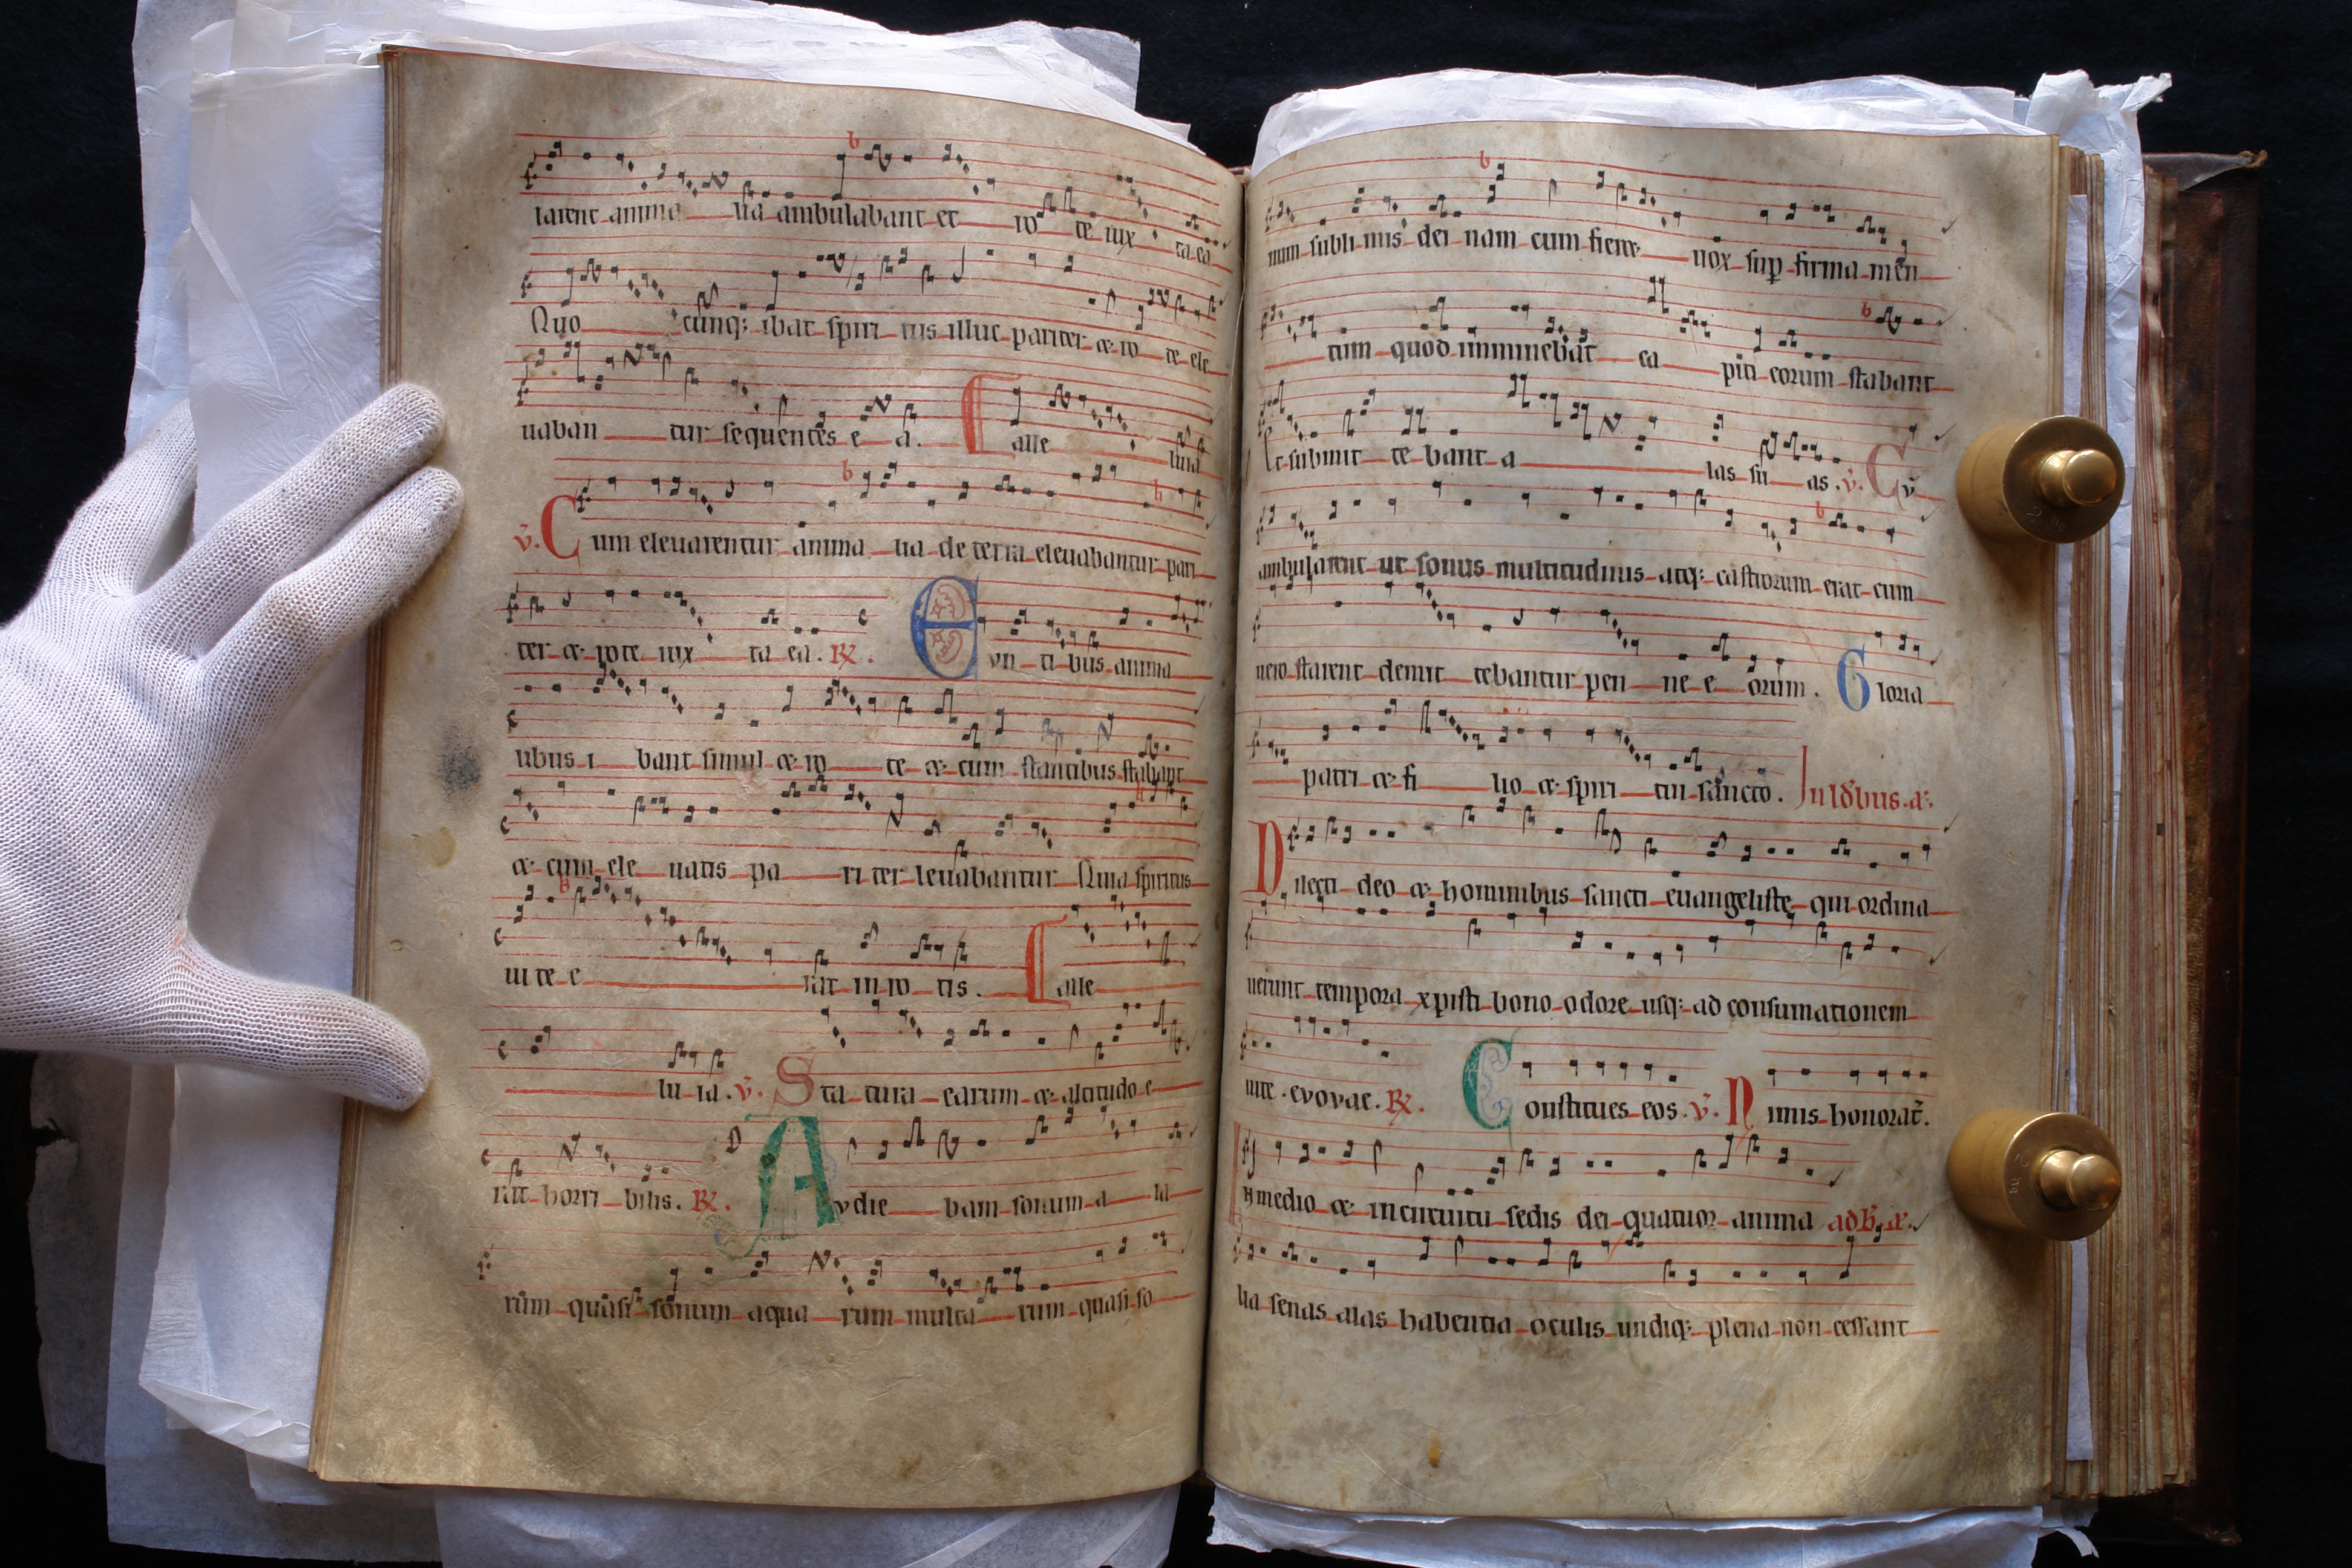 rarent anima lia ambulabant et ro te iux ta ea
Quo cunq; ibat spiri tus illuc pariter & ro te ele
uaban tur sequentes e a. alle luia
v̄. Cum eleuarentur anima lia de terra eleuabantur pari
ter & rote iux ta ea. R̄. Evn ti bus anima
libus i bant simul & ro te & cum stantibus stabant
& cum ele uatis pa ri ter leuabantur Quia spiritus
uite e rat in ro tis. alle
lu ia. v̄. Sta tura earum & altitudo e
rat horri bilis. R̄. Avdie bam sonum a la
rum quasi sonum aqua rum multa rum quasi so
num subli mis dei nam cum fieret uox sup firma men
tum quod imminebat ca piti eorum stabant
Et submit te bant a las su as. v̄. Cv̄
ambularent ut sonus multitudinis atq; castrorum erat cum
uero starent demit tebantur pen ne e orum. Gloria
patri & fi lio & spiri tui sancto. In ld̄bus. a.
Dilecti deo & hominibus sancti euangeliste qui ordina
uerunt tempora xpisti bono odore usq; ad consumationem
uite. evovae. R̄. Constitues eos. v̄. Nimis honorat̄.
In medio & in circuitu sedis dei quatuor anima ad B. a.
lia senas alas habentia oculis undiq; plena non cessant